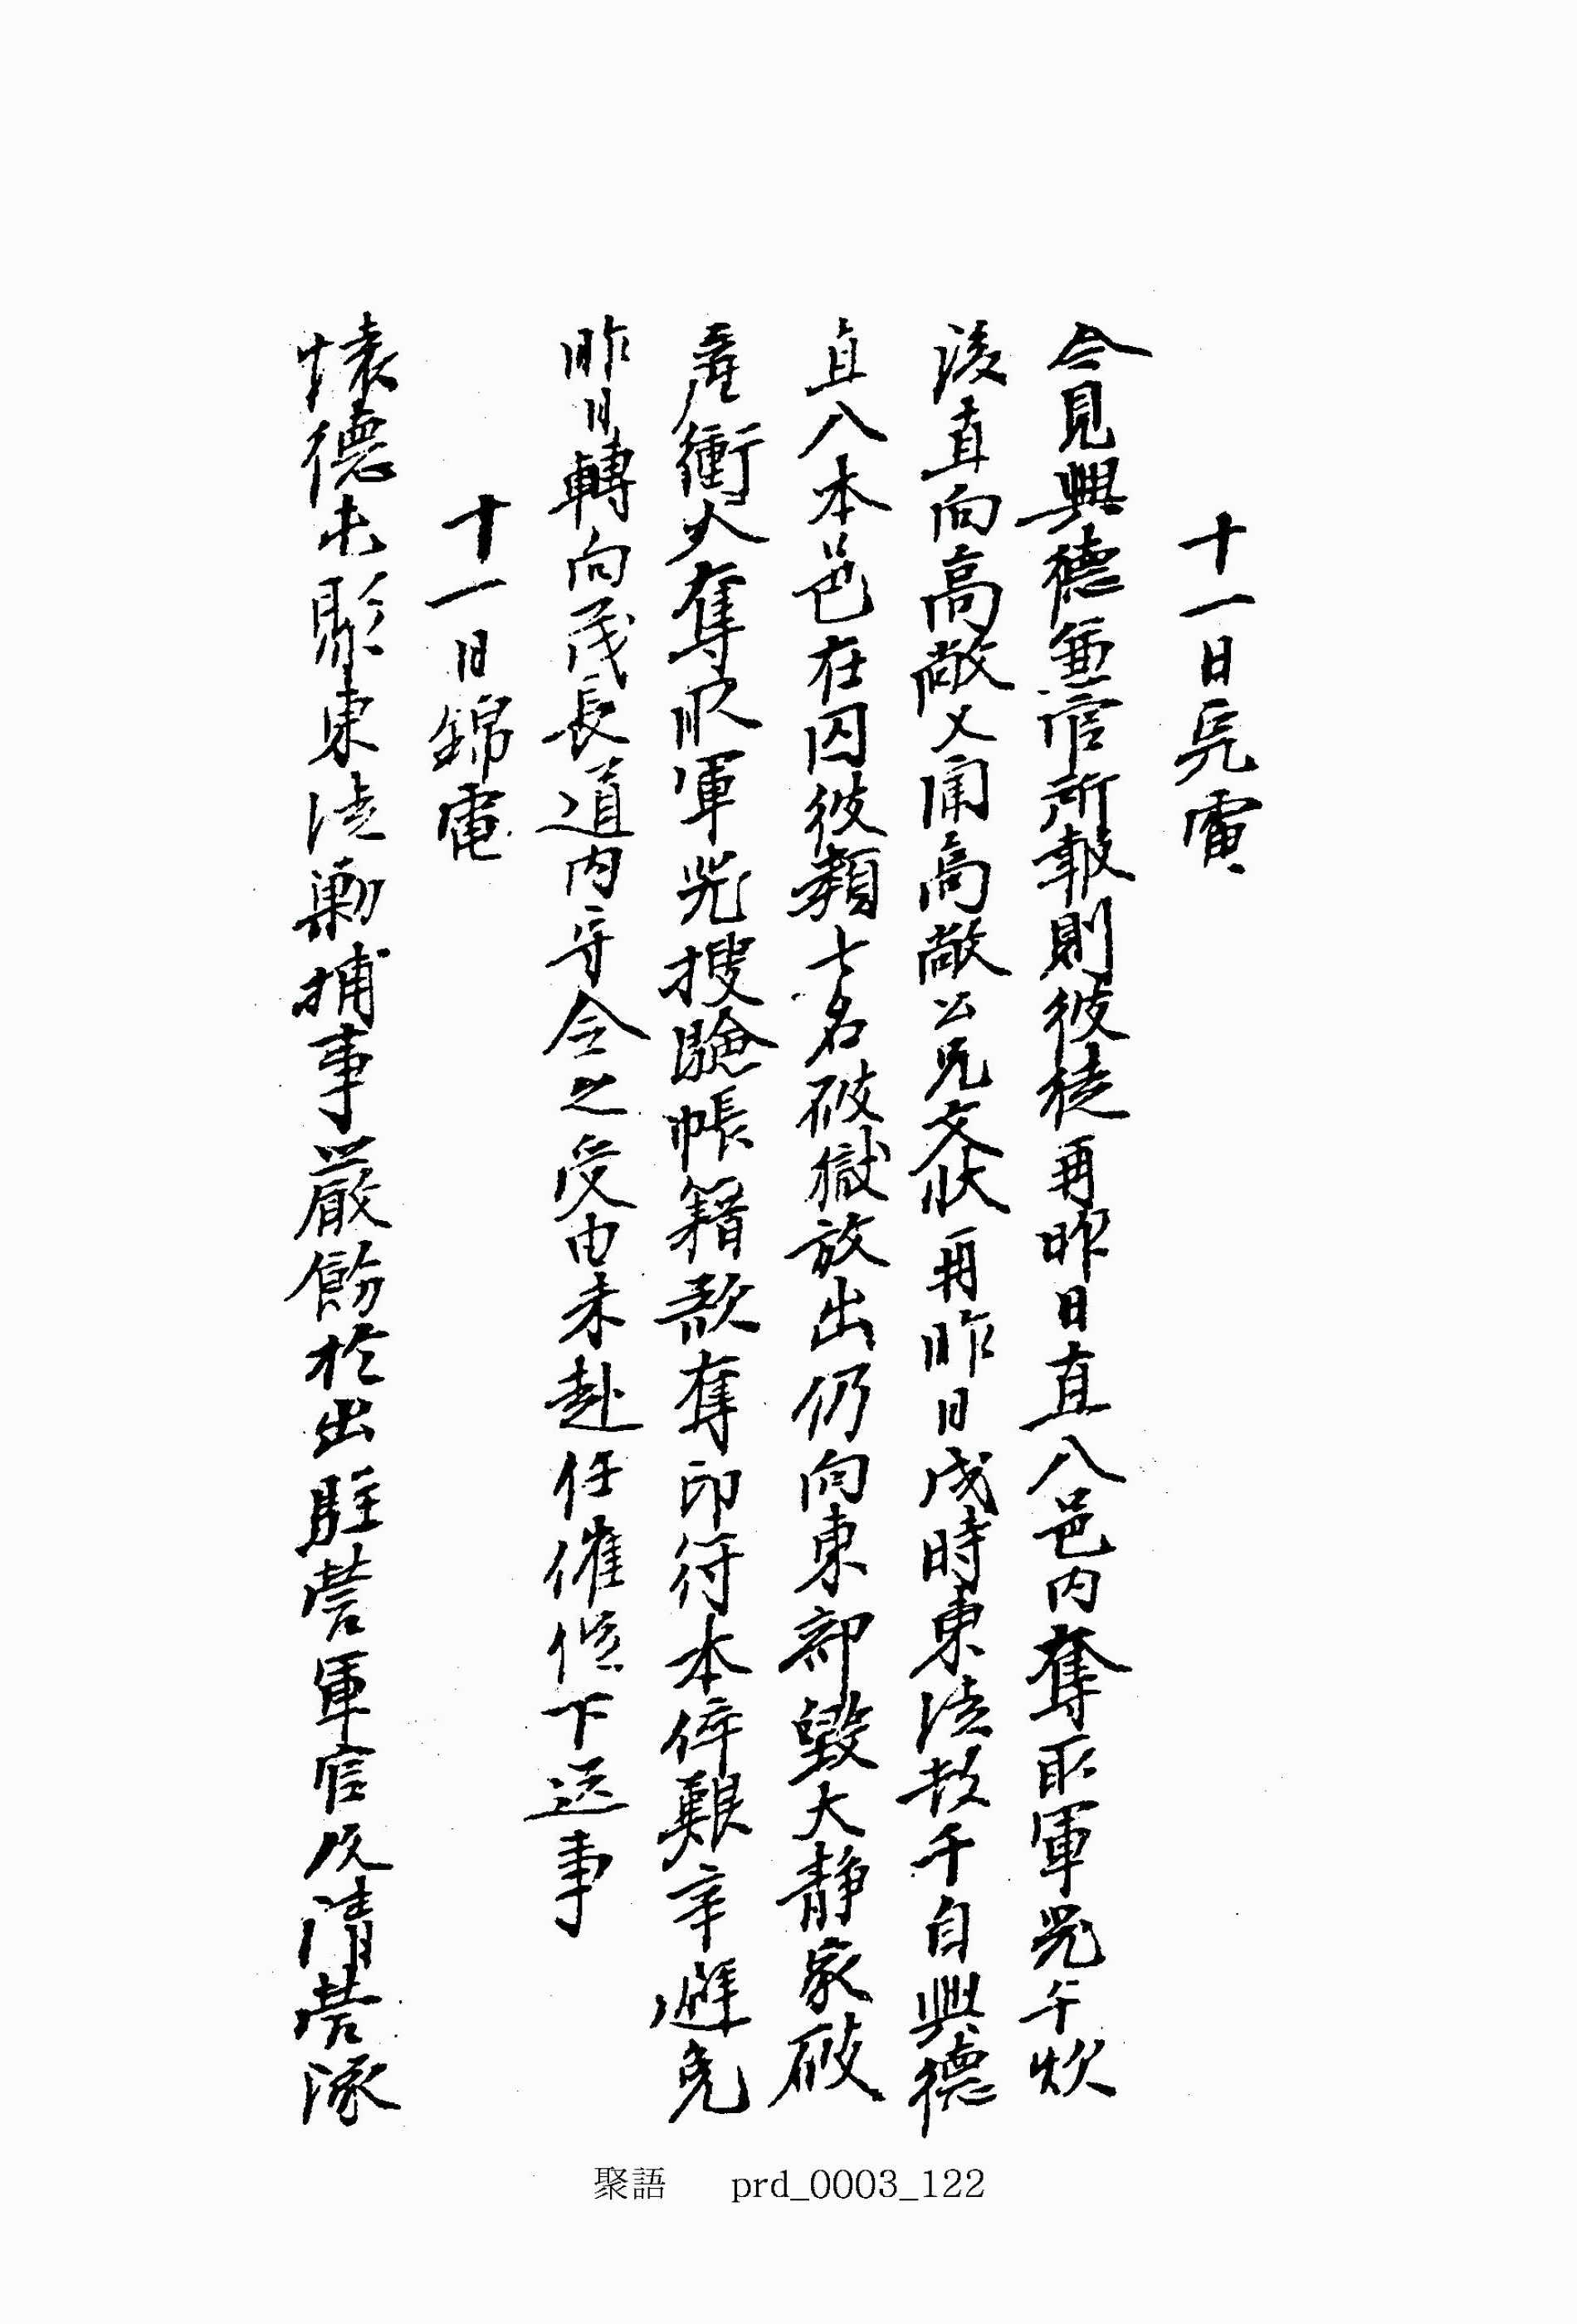 十一日完電
今見興德兼官所報則彼徒再昨日直入邑內奪取軍器午炊
後直向高敞又聞高敞公兄文狀再昨日戌時東徒數千自興德
直入本邑在囚彼類七名破獄放出仍向東部毁大靜家破
産衝火奪取軍器搜驗帳籍欲奪印符本倅艱辛避免
昨日轉向茂長道內守令之受由未赴任催促下送事
十一日錦電
懷德未散東徒勦捕事嚴飭於出駐營軍官及淸營隊
聚語 prd_0003_122